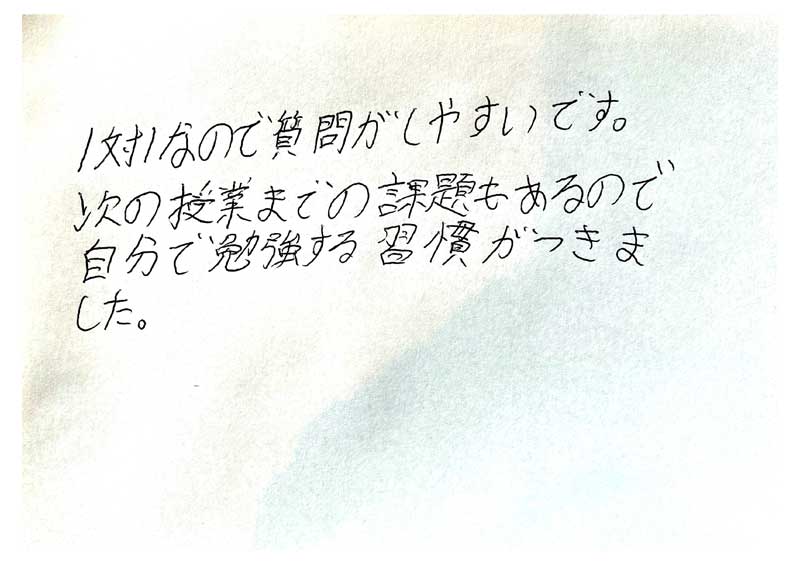 1対1なので質問がしやすいです。
次の授業までの課題もあるので
自分で勉強する習慣がつきま
した。